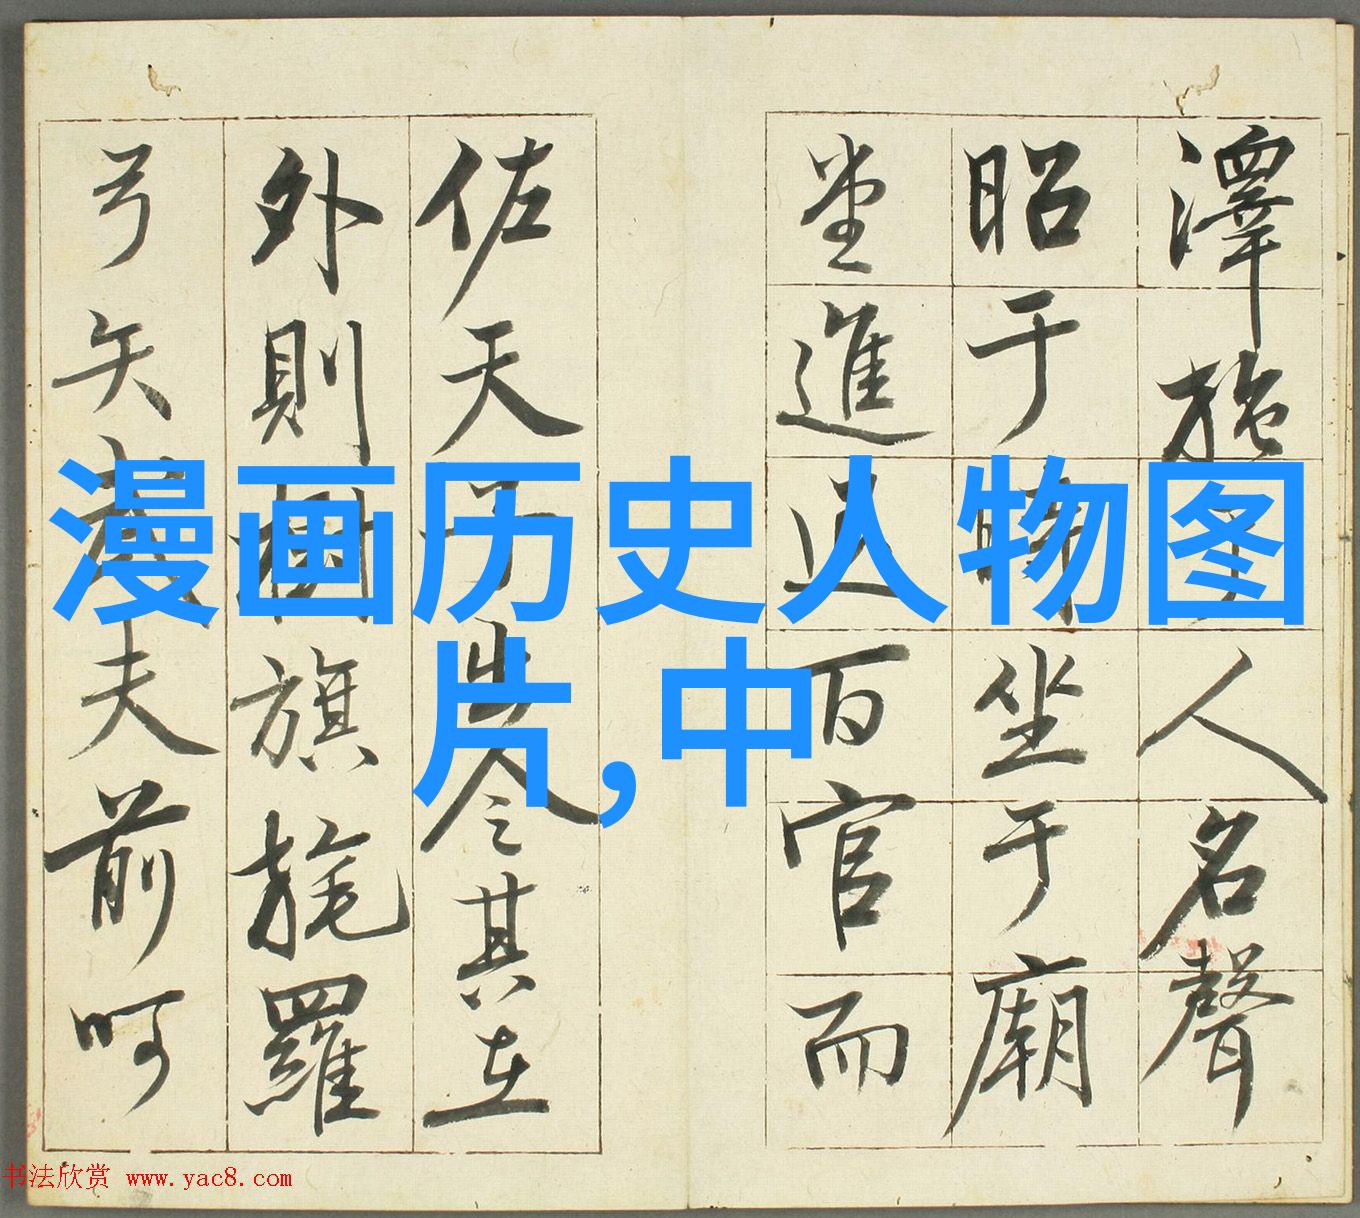 澤施于人名聲
昭于時坐于廟
堂進退百官而
佐天子出令其在
外則樹旗旄羅
弓矢武夫前呵
漫画历史人物图
片,中
书法欣赏 www.yac8.com